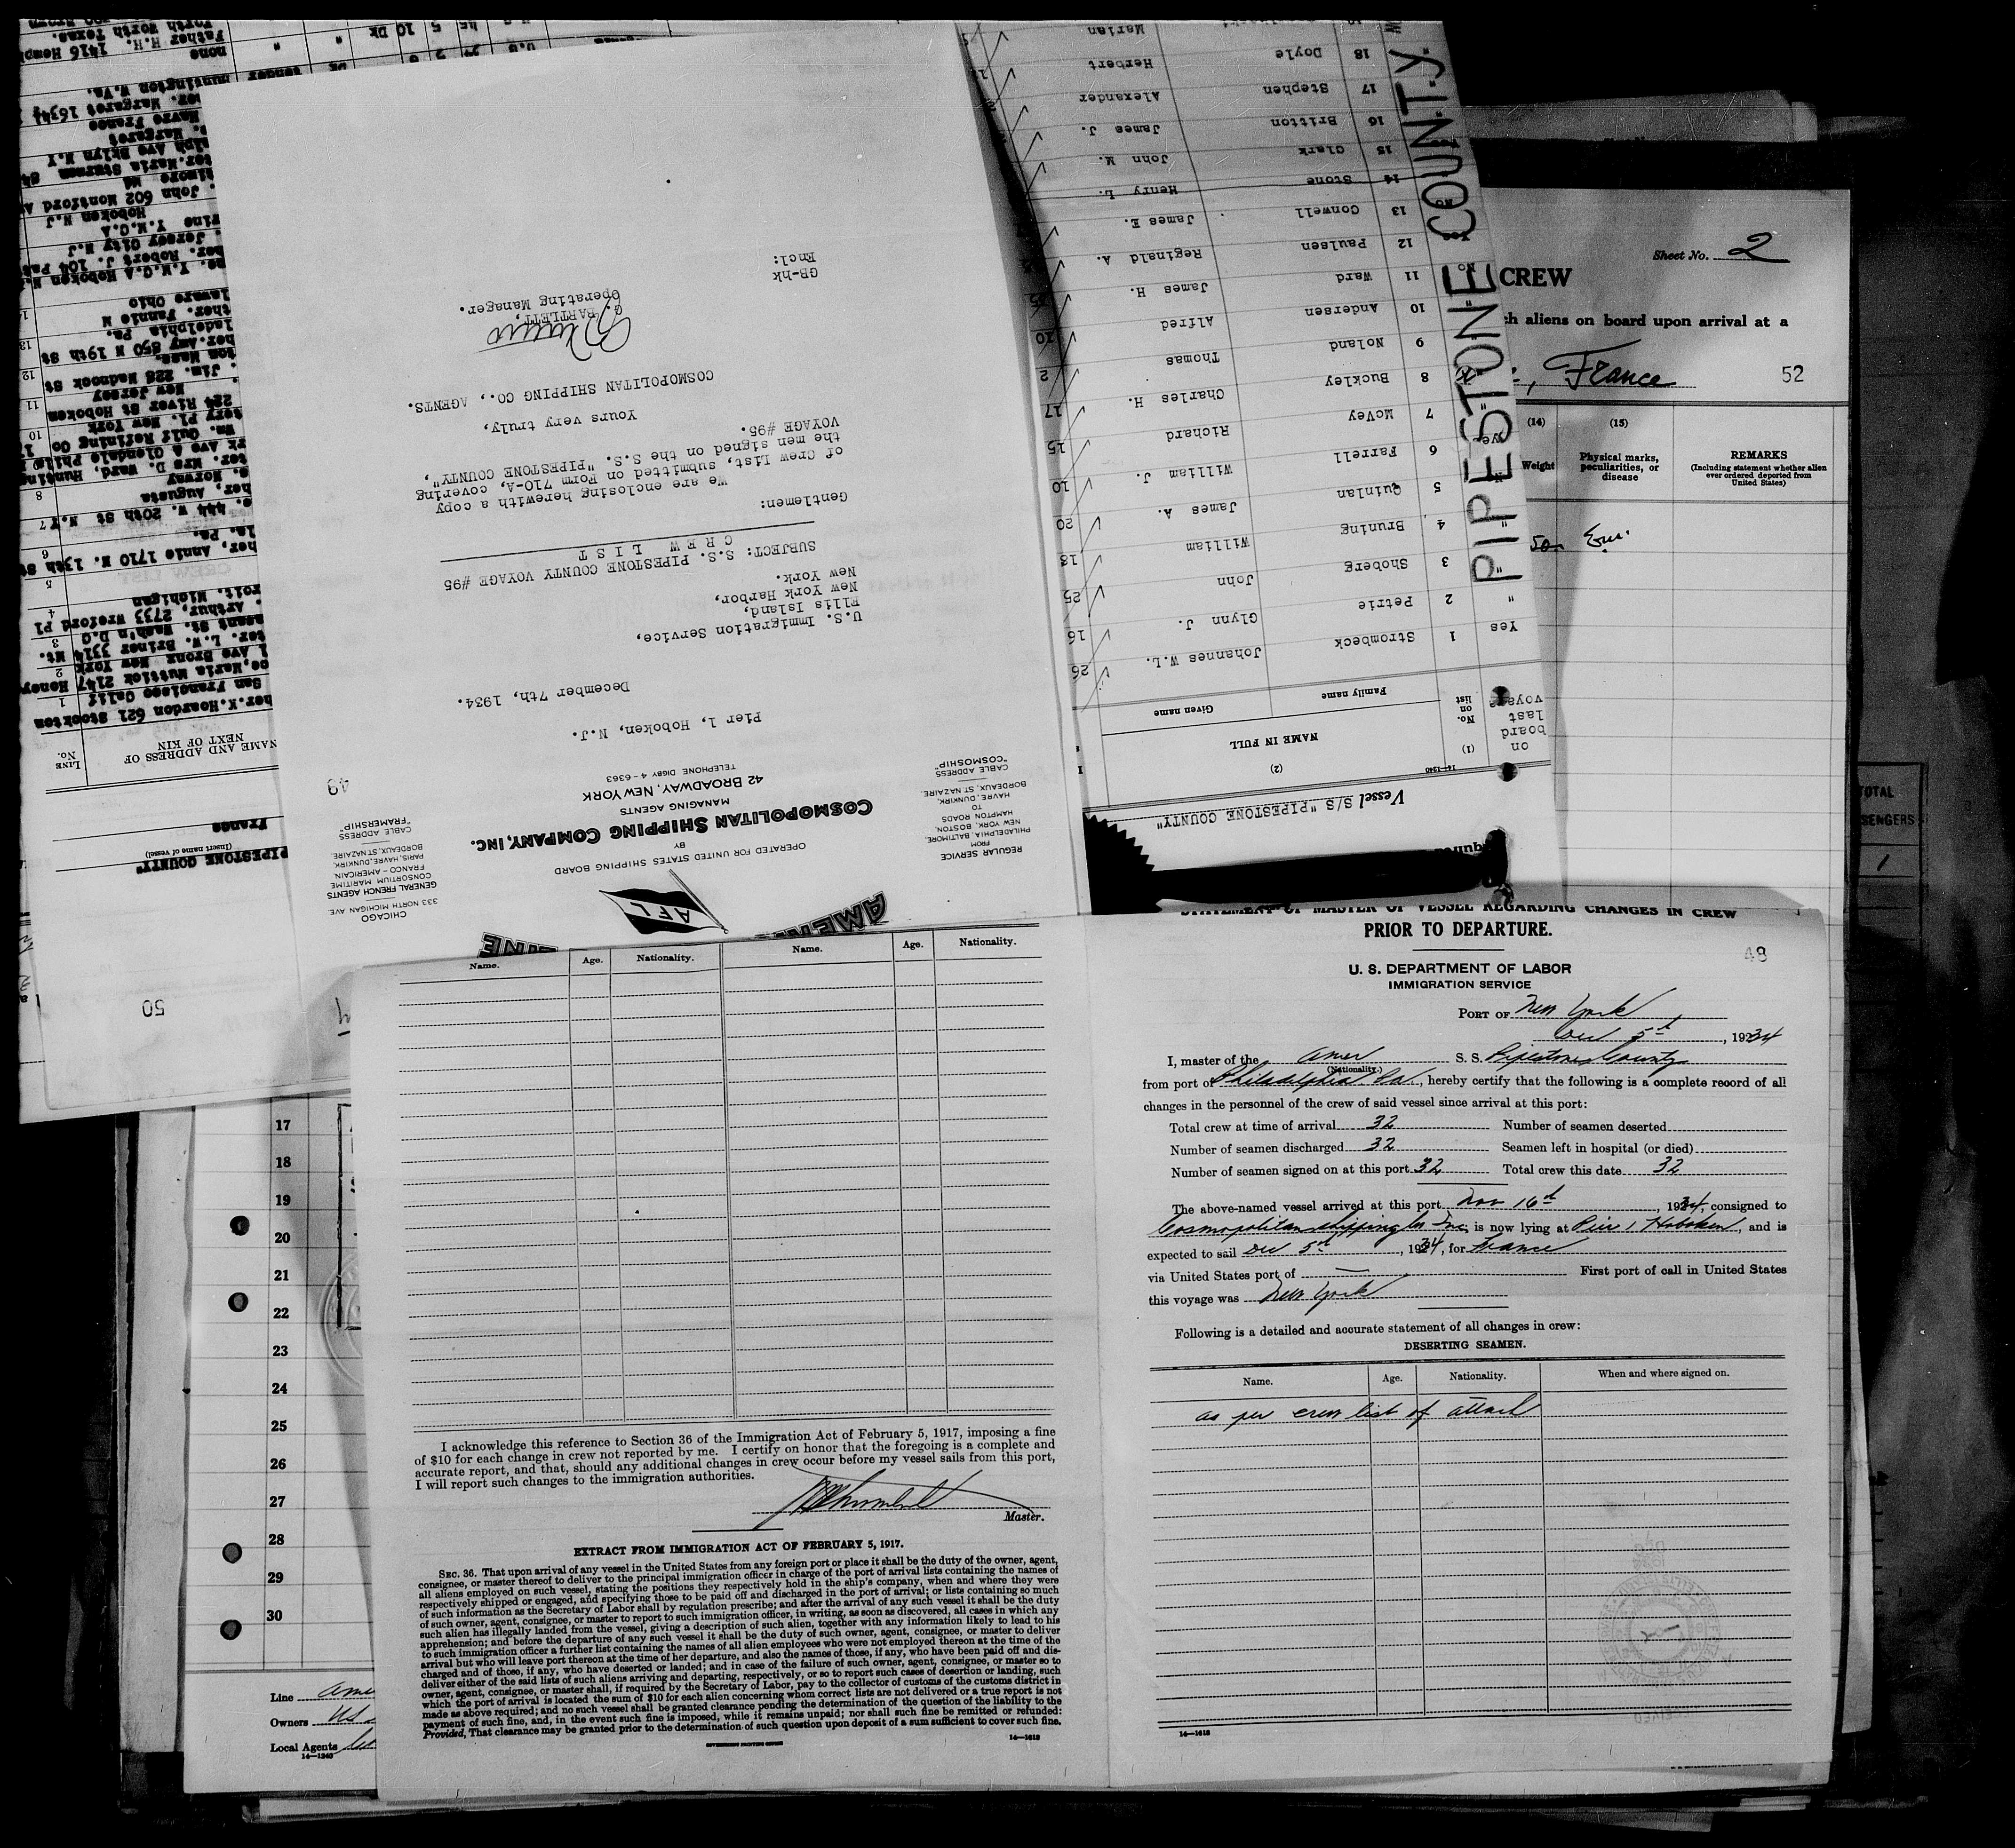 Sheet No. 2
CREW
aliens on board upon arrival at a
France
52
(14)
(15)
Weight
Physical marks,
peculiarities, or
disease
REMARKS
(Including statement whether alien
ever ordered deported from
United States)
TOTAL
1
PIPESTONE COUNTY
Vessel S/S "PIPESTONE COUNTY"
14-1240
on
board
last
voyage
(1)
No.
on
list
(2)
NAME IN FULL
Family name
Given name
Yes 1 Strombeck Johannes W.L. 26
" 2 Petrie Glynn J. 16
3 Shoberg John 25
" 4 Bruning William 18
5 Quinlan James A. 20
6 Farrell William J. 10
7 McVey Richard 15
8 Buckley Charles H. 17
" 9 Noland Thomas 2
10 Andersen Alfred 10
No 11 Ward James H.
12 Paulsen Reginald A.
13 Conwell James E.
14 Stone Henry L.
15 Clark John M.
16 Britton James J.
17 Stephen Alexander
18 Doyle Herbert
Marian
CHICAGO
333 NORTH MICHIGAN AVE.
GENERAL FRENCH AGENTS
CONSORTIUM MARITIME
FRANCO-AMERICAIN.
PARIS, HAVRE, DUNKIRK,
BORDEAUX, ST NAZAIRE.
CABLE ADDRESS
"FRAMERSHIP"
AFL
OPERATED FOR UNITED STATES SHIPPING BOARD
BY
COSMOPOLITAN SHIPPING COMPANY, INC.
MANAGING AGENTS
42 BROADWAY, NEW YORK
TELEPHONE DIGBY 4-6363
REGULAR SERVICE
FROM
PHILADELPHIA, BALTIMORE,
NEW YORK, BOSTON,
HAMPTON ROADS
TO
HAVRE, DUNKIRK,
BORDEAUX, ST NAZAIRE.
CABLE ADDRESS
"COSMOSHIP"
49
Pier 1, Hoboken, N.J.
December 7th, 1934.
U.S. Immigration Service,
Ellis Island,
New York Harbor,
New York.
SUBJECT: S.S. PIPESTONE COUNTY VOYAGE #95
CREW LIST
Gentlemen:
We are enclosing herewith a copy
of Crew List, submitted on Form 710-A, covering
the men signed on the S.S. "PIPESTONE COUNTY",
VOYAGE #95.
Yours very truly,
COSMOPOLITAN SHIPPING CO., AGENTS.
G. BARTLETT,
Operating Manager.
GB-hk
Encl:
50
PIPESTONE COUNTY"
(Insert name of vessel)
France
LINE
No.
NAME AND ADDRESS OF
NEXT OF KIN
her.K.Hoardon 621 Stockton
San Francisco Calif
1
2
3
4
5
6
7
8
10
11
12
13
Ave Bronx New York
ter. L.W. Briner 3314 Mt.
. Arthur, 2733 Wreford Pl
roit. Michigan
her, Annie 1710 N. 13th St
la. Pa.
e. 444 W. 20th St N.Y
her, Augusta
Norway
ter. Mrs D. Ward, Hunting
rk Ave & Glendale Phila
Wm. Gulf Refining Co
tery Pl. New York
224 River St Hoboken
New Jersey
ton Mass.
her.Amy 850 N 19th St
ladelphia Pa.
ther. Fannie M
laware Ohio
ne. Y.M.C.A Hoboken N.J
her. Robert J. 104
. Jersey City N.J
rine Y.M.C.A
Hoboken N.J
. John 602 Montford
ter.Maria Sturmen
lph Ave Bklyn N.Y
. Margaret
Havre France
her. Margaret 1634
Huntington W.Va.
none
Father H.H. 1416 Hemph
Forth Worth Texas.
17
18
19
20
21
22
23
24
25
26
27
28
29
30
Line
Owners US
Local Agents
14—1240
Name.
Age.
Nationality.
Name.
Age.
Nationality.
I acknowledge this reference to Section 36 of the Immigration Act of February 5, 1917, imposing a fine
of $10 for each change in crew not reported by me. I certify on honor that the foregoing is a complete and
accurate report, and that, should any additional changes in crew occur before my vessel sails from this port,
I will report such changes to the immigration authorities.
Master.
EXTRACT FROM IMMIGRATION ACT OF FEBRUARY 5, 1917.
SEC. 36. That upon arrival of any vessel in the United States from any foreign port or place it shall be the duty of the owner, agent,
consignee, or master thereof to deliver to the principal immigration officer in charge of the port of arrival lists containing the names of
all aliens employed on such vessel, stating the positions they respectively hold in the ship's company, when and where they were
respectively shipped or engaged, and specifying those to be paid off and discharged in the port of arrival; or lists containing so much
of such information as the Secretary of Labor shall by regulation prescribe; and after the arrival of any such vessel it shall be the duty
of such owner, agent, consignee, or master to report to such immigration officer, in writing, as soon as discovered, all cases in which any
such alien has illegally landed from the vessel, giving a description of such alien, together with any information likely to lead to his
apprehension; and before the departure of any such vessel it shall be the duty of such owner, agent, consignee, or master to deliver
to such immigration officer a further list containing the names of all alien employees who were not employed thereon at the time of the
arrival but who will leave port thereon at the time of her departure, and also the names of those, if any, who have been paid off and dis-
charged and of those, if any, who have deserted or landed; and in case of the failure of such owner, agent, consignee, or master so to
deliver either of the said lists of such aliens arriving and departing, respectively, or so to report such cases of desertion or landing, such
owner, agent, consignee, or master shall, if required by the Secretary of Labor, pay to the collector of customs of the customs district in
which the port of arrival is located the sum of $10 for each alien concerning whom correct lists are not delivered or a true report is not
made as above required; and no such vessel shall be granted clearance pending the determination of the question of the liability to the
payment of such fine, and, in the event such fine is imposed, while it remains unpaid; nor shall such fine be remitted or refunded:
Provided, That clearance may be granted prior to the determination of such question upon deposit of a sum sufficient to cover such fine.
GOVERNMENT PRINTING OFFICE
14—1618
STATEMENT OF MASTER OF VESSEL REGARDING CHANGES IN CREW
PRIOR TO DEPARTURE.
48
U. S. DEPARTMENT OF LABOR
IMMIGRATION SERVICE
PORT OF New York
Dec 5th, 1934
I, master of the Amer S. S. Pipestone County
(Nationality.)
from port of Philadelphia Pa., hereby certify that the following is a complete record of all
changes in the personnel of the crew of said vessel since arrival at this port:
Total crew at time of arrival 32 Number of seamen deserted
Number of seamen discharged 32 Seamen left in hospital (or died)
Number of seamen signed on at this port 32 Total crew this date 32
The above-named vessel arrived at this port Nov 16th, 1934, consigned to
Cosmopolitan Shipping Co Inc, is now lying at Pier 1 Hoboken, and is
expected to sail Dec 5th, 1934, for France
via United States port of — First port of call in United States
this voyage was New York
Following is a detailed and accurate statement of all changes in crew:
DESERTING SEAMEN.
Name.
Age.
Nationality.
When and where signed on.
as per crew list of attach
14—1618